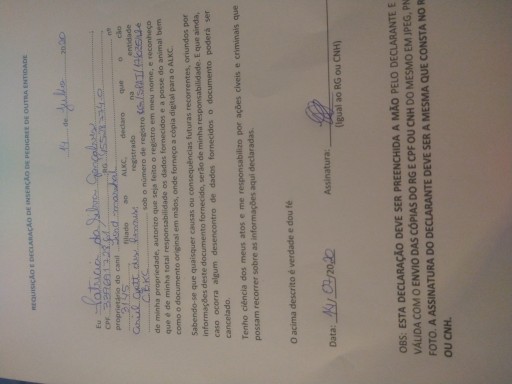 REQUISIÇÃO E DECLARAÇÃO DE INSERÇÃO DE PEDIGREE DE OUTRA ENTIDADE
14 de Julho 2020
Eu Patricia da Silva Gonçalves
CPF RG nº
proprietário do canil
filiado ao ALKC, declaro que o cão
registrado na entidade
CBKC sob o número de registro
de minha propriedade, autorizo que seja feito o registro em meu nome, e reconheço
que é de minha total responsabilidade os dados fornecidos e a posse do animal bem
como o documento original em mãos, onde forneço a cópia digital para o ALKC.
Sabendo-se que quaisquer causas ou consequências futuras recorrentes, oriundos por
informações deste documento fornecido, serão de minha responsabilidade. E que ainda,
caso ocorra algum desencontro de dados fornecidos o documento poderá ser
cancelado.
Tenho ciência dos meus atos e me responsabilizo por ações cíveis e criminais que
possam recorrer sobre as informações aqui declaradas.
O acima descrito é verdade e dou fé
Data: 14/07/2020 Assinatura:
(Igual ao RG ou CNH)
OBS: ESTA DECLARAÇÃO DEVE SER PREENCHIDA A MÃO PELO DECLARANTE E
VÁLIDA COM O ENVIO DAS CÓPIAS DO RG E CPF OU CNH DO MESMO EM JPEG,
FOTO. A ASSINATURA DO DECLARANTE DEVE SER A MESMA QUE CONSTA NO
OU CNH.